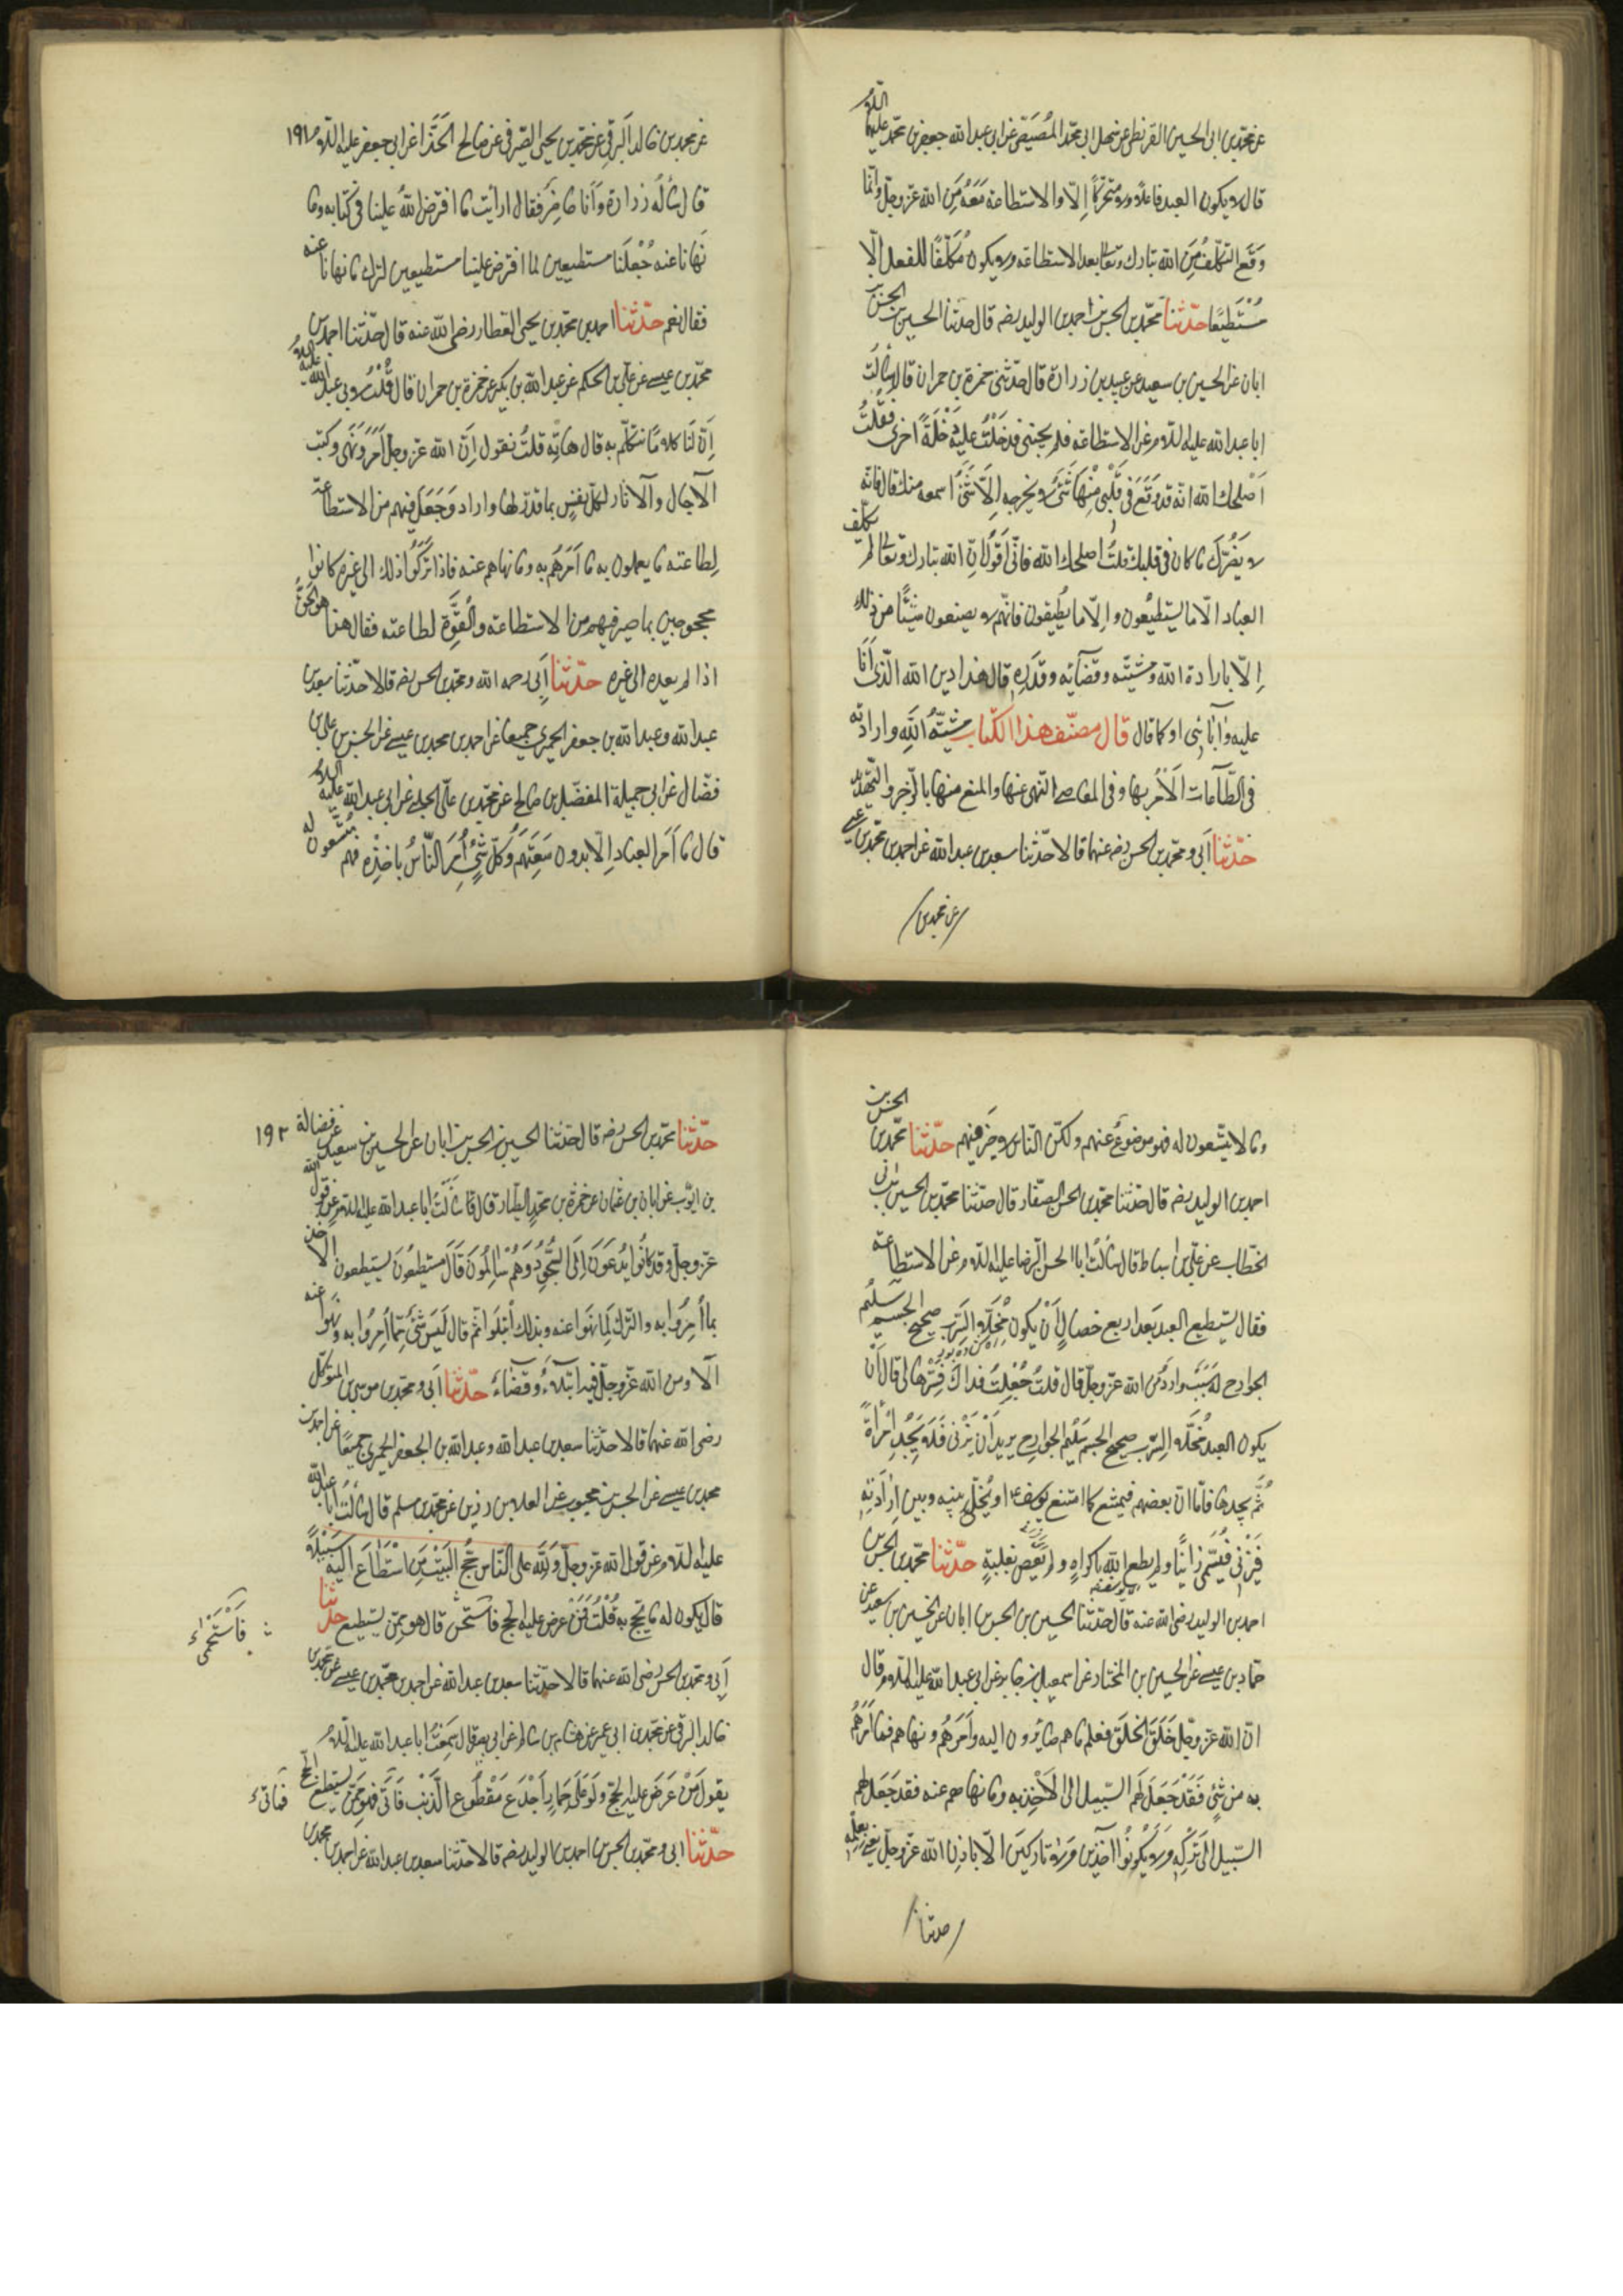 عن محمد بن ابي الحسين القريظي عن سهل ابي محمد المصيصي عن ابي عبد الله جعفر بن محمد عليهما السلام
قال لا يكون العبد فاعلا ولا متحركا إلا والاستطاعة معه من الله عز وجل وانما
وقع التكلف من الله تبارك وتعالى بعد الاستطاعة ولا يكون مكلفا للفعل الا
مستطيعا حدثنا محمد بن الحسن بن احمد بن الوليد رضه قال حدثنا الحسين بن الحسن بن
ابان عن الحسين بن سعيد عن عبيد بن زرارة قال حدثني حمزة بن حمران قال سألت
ابا عبد الله عليه السلام عن الاستطاعة فلم يجبني فدخلت عليه دخلة اخرى فقلت
اصلحك الله انه قد وقع في قلبي منها شئ لا يخرجه إلا شئ اسمعه منك قال فانه
لا يضرك ما كان في قلبك قلت اصلحك الله فاني اقول ان الله تبارك وتعالى لم يكلف
العباد الا ما يستطيعون وإلا ما يطيقون فانهم لا يصنعون شيئا من ذلك
إلا بارادة الله ومشيته وقضائه وقدره قال هذا دين الله الذي أنا
عليه وآبائي او كما قال قال مصنف هذا الكتاب مشية الله وارادته
في الطاعات الأمر بها وفي المعاصي النهي عنها والمنع منها بالزجر والتهديد
حدثنا أبي ومحمد بن الحسن رضه عنهما قالا حدثنا سعد بن عبد الله عن احمد بن محمد بن عيسى
عن محمد بن
عن محمد بن خالد البرقي عن محمد بن يحيى الصيرفي عن صالح الحذا عن ابي جعفر عليه السلام ١٩١
قال سأله زرارة وأنا حاضر فقال ارأيت ما افترض الله علينا في كتابه وما
نهانا عنه جعلنا مستطيعين لما افترض علينا مستطيعين لترك ما نهانا عنه
فقال نعم حدثنا احمد بن محمد بن يحيى العطار رضى الله عنه قال حدثنا احمد بن
محمد بن عيسى عن علي بن الحكم عن عبد الله بن بكير عن حمزة بن حمران قال قلت لابي عبد الله عليه السلام
إن لنا كلاما نتكلم به قال هاته قلت نقول إن الله عز وجل أمر ونهى وكتب
الآجال والآثار لكل نفس بما قدر لها واراد وجعل فيهم من الاستطاعة
لطاعته ما يعملون به ما أمرهم به وما نهاهم عنه فاذا تركوا ذلك الى غيره كانوا
محجوجين بما صير فيهم من الاستطاعة والقوة لطاعته فقال هذا هو الحق
اذا لم يعده الى غيره حدثنا أبي رحمه الله ومحمد بن الحسن رضه قالا حدثنا سعد بن
عبد الله وعبد الله بن جعفر الحميري جميعا عن احمد بن محمد بن عيسى عن الحسن بن علي بن
فضال عن ابي جميلة المفضل بن صالح عن محمد بن علي الحلبي عن ابي عبد الله عليه السلام
قال ما أمر العباد إلا بدون سعتهم وكل شئ أمر الناس باخذه فهم متسعون له
وما لا يتسعون له فهو موضوع عنهم ولكن الناس لا خير فيهم حدثنا محمد بن الحسن بن
احمد بن الوليد رضه قال حدثنا محمد بن الحسن الصفار قال حدثنا محمد بن الحسين بن ابي
الخطاب عن علي بن اسباط قال سألت ابا الحسن الرضا عليه السلام عن الاستطاعة
فقال يستطيع العبد بعد اربع خصال أن يكون مخلى السرب صحيح الجسم سليم
الجوارح له سبب وارد من الله عز وجل قال قلت جعلت فداك فسرها لي قال أن
يكون العبد مخلى السرب صحيح الجسم سليم الجوارح يريد أن يزني فلا يجد امرأة
ثم يجدها فاما ان يعصم فيمتنع كما امتنع يوسف ع او يخلى بينه وبين إرادته
فيزني فيسمى زانيا ولم يطع الله باكراه ولم يعص بغلبة حدثنا محمد بن الحسن بن
احمد بن الوليد رضى الله عنه قال حدثنا الحسين بن الحسن بن ابان عن الحسين بن سعيد عن
حماد بن عيسى عن الحسين بن المختار عن اسمعيل بن جابر عن ابي عبد الله عليه السلام قال
ان الله عز وجل خلق الخلق فعلم ما هم صائرون اليه وأمرهم ونهاهم فما أمرهم
به من شئ فقد جعل لهم السبيل الى الأخذ به وما نهاهم عنه فقد جعل لهم
السبيل الى تركه ولا يكونوا آخذين ولا تاركين الا باذن الله عز وجل يعني بعلمه
حدثنا
حدثنا محمد بن الحسن رضه قال حدثنا الحسين بن الحسن بن ابان عن الحسين بن سعيد عن فضالة ١٩٢
بن ايوب عن ابان بن عثمان عن حمزة بن محمد الطيار قال سألت ابا عبد الله عليه السلام عن قول الله
عز وجل وقد كانوا يدعون إلى السجود وهم سالمون قال مستطيعون يستطيعون الاخذ
بما أمروا به والترك لما نهوا عنه وبذلك ابتلوا ثم قال ليس شئ مما أمروا به ونهوا عنه
الا ومن الله عز وجل فيه ابتلاء وقضاء حدثنا أبي ومحمد بن موسى بن المتوكل
رضى الله عنهما قالا حدثنا سعد بن عبد الله وعبد الله بن الجعفر الحميري جميعا عن احمد بن
محمد بن عيسى عن الحسن بن محبوب عن العلا بن رزين عن محمد بن مسلم قال سألت ابا عبد الله
عليه السلام عن قول الله عز وجل ولله على الناس حج البيت من استطاع اليه سبيلا
قال يكون له ما يحج به قلت فمن عرض عليه الحج فاستحى قال هو ممن يستطيع حدثنا
فاستحى
أبي ومحمد بن الحسن رضى الله عنهما قالا حدثنا سعد بن عبد الله عن احمد بن محمد بن عيسى عن محمد بن
خالد البرقي عن محمد بن ابي عمير عن هشام بن سالم عن ابي بصير قال سمعت ابا عبد الله عليه السلام
يقول من عرض عليه الحج ولو على حمار أجدع مقطوع الذنب فأتى فهو ممن يستطيع الحج
فأبى
حدثنا ابي ومحمد بن الحسن بن احمد بن الوليد رضه قالا حدثنا سعد بن عبد الله عن احمد بن محمد بن